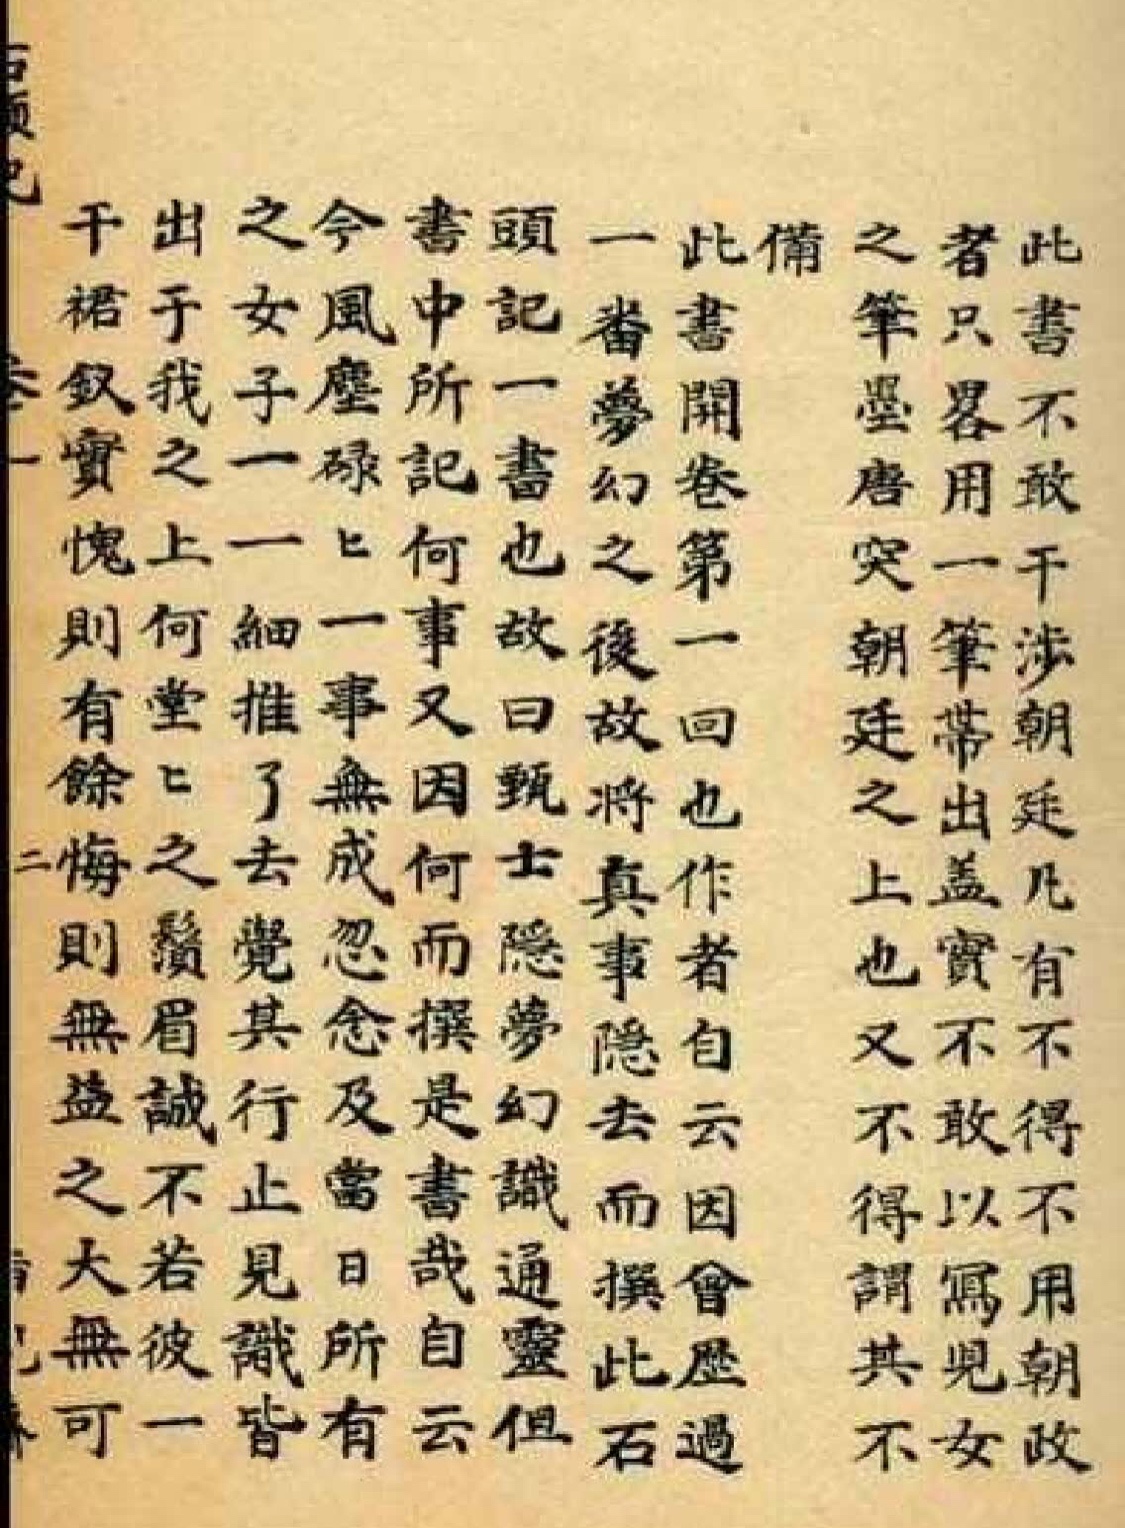 此書不敢干涉朝廷凡有不得不用朝政
者只畧用一筆帶出盖實不敢以寫児女
之筆墨唐突朝廷之上也又不得謂其不
備
此書開卷第一回也作者自云因曾歷過
一番夢幻之後故將真事隱去而撰此石
頭記一書也故曰甄士隱夢幻識通靈但
書中所記何事又因何而撰是書哉自云
今風塵碌ヒ一事無成忽念及當日所有
之女子一一細推了去覺其行止見識皆
出于我之上何堂ヒ之鬚眉誠不若彼一
干裙釵實愧則有餘悔則無益之大無可
石頭記 卷一 二